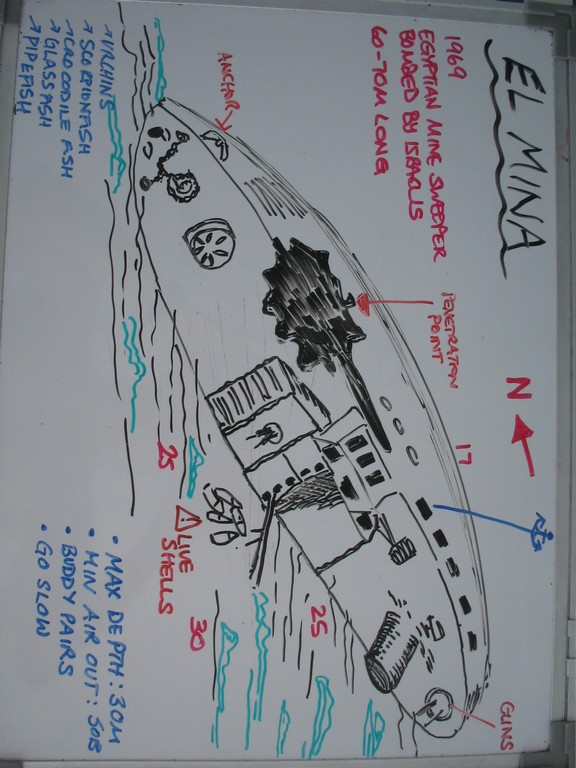 EL MINA
1969
EGYPTIAN MINE SWEEPER
BOMBED BY ISRAELIS
60-70M LONG
ANCHOR
PENETRATION
POINT
N
17
GUNS
25
LIVE
SHELLS
30
25
→ URCHINS
→ SCORPIONFISH
→ CROCODILE FISH
→ GLASSFISH
→ PIPEFISH
• MAX DEPTH: 30M
• MIN AIR OUT: 50B
• BUDDY PAIRS
• GO SLOW